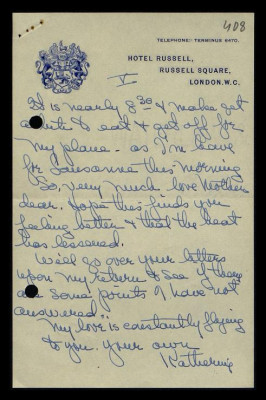 408
TELEPHONE: TERMINUS 6470.
HOTEL RUSSELL,
RUSSELL SQUARE,
LONDON. W.C.
V
It is nearly 8 30 & must get
a bite to eat & get off for
my plane - as I'm leave
for Lausanne this morning
So, very much love Mother
dear. Hope this finds you
feeling better & that the heat
has lessened.
Will go over your letters
upon my return & see if there
are some points I have not
answered.
My love is constantly flying
to you. Your own
Katherine